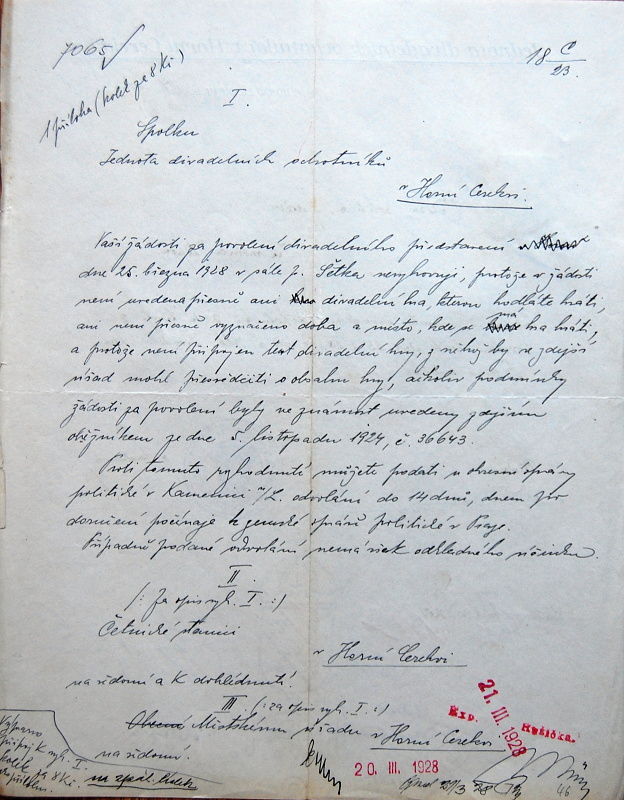 7065
18 C/23.
1 příloha (kolek za 8 Kč)
I.
Spolku
Jednota divadelních ochotníků
v Horní Cerekvi.
Vaší žádosti za povolení divadelního představení
dne 25. března 1928 v sále p. Sětka nevyhovuji, protože v žádosti
není uvedena přesně ani divadelní hra, kterou hodláte hráti,
ani není přesně vyznačeno doba a místo, kde se má hra hráti,
a protože není připojen text divadelní hry, z něhož by se zdejší
úřad mohl přesvědčiti o obsahu hry, ačkoliv podmínky
žádosti za povolení byly ve známost uvedeny zdejším
oběžníkem ze dne 5. listopadu 1924, č. 36643.
Proti tomuto rozhodnutí můžete podati u okresní správy
politické v Kamenici n/L. odvolání do 14 dnů, dnem po
doručení počínaje k zemské správě politické v Praze.
Případně podané odvolání nemá však odkladného účinku.
II.
/: Za opis vyř. I. :/
Četnické stanici
v Horní Cerekvi
na vědomí a k dohlédnutí.
III. /: za opis vyř. I. :/
Obecní Městskému úřadu v Horní Cerekvi
na vědomí.
vyř. I.
kolek za 8 Kč.
20. III. 1928
21. III. 1928
Exp. Růžička.
46